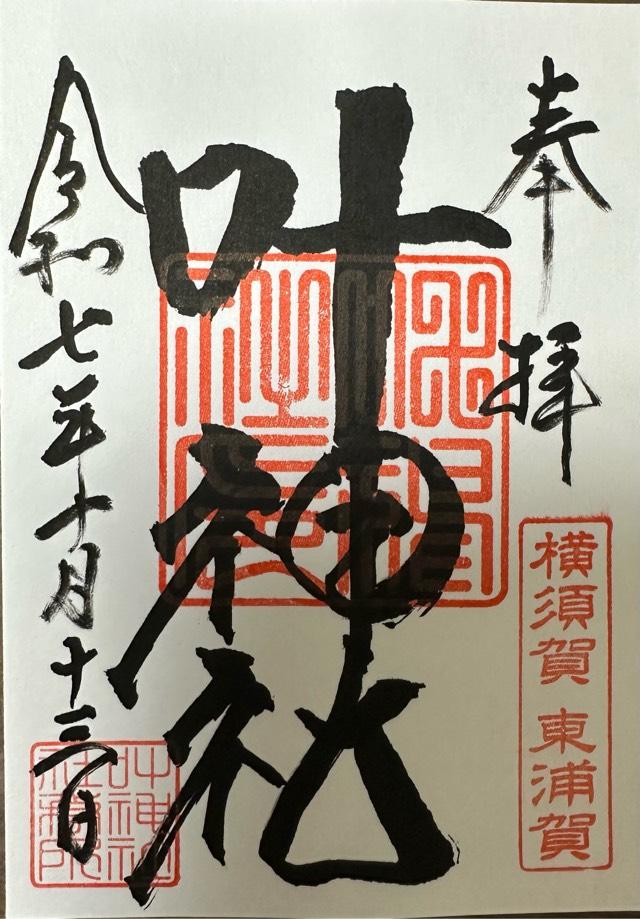 奉拝
横須賀 東浦賀
叶神社
令和七年十月十三日
叶神社社務所